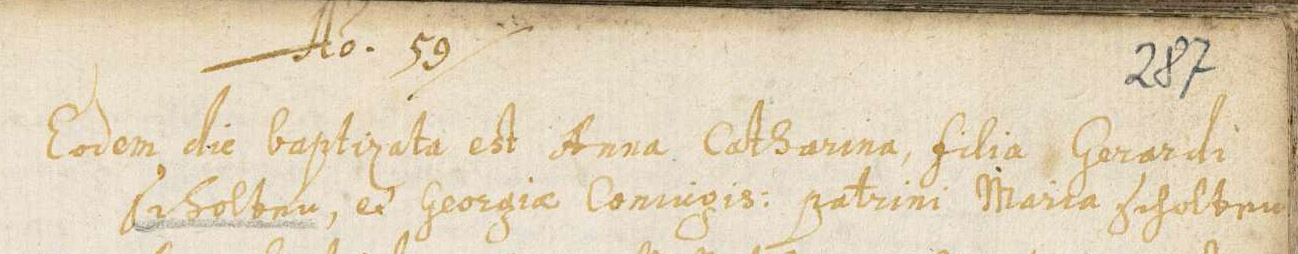 Ao. 59
287
Eodem die baptizata est Anna Catharina, filia Gerardi
Scholten, et Georgiæ Coniugis: patrini Maria Scholten